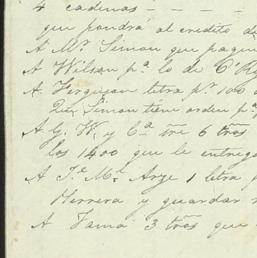 4 cadenas - - - -
que pondrá al credito de
A Mr. Simon que pague
A Wilson pa. lo de O'R
A Ferguson letra pr. 100
Simon tiene orden pa.
A G. W. y Ca. tre 6 tros
los 1400 que le entreg
A Je. Ml. Arze 1 letra
Herrera y guardar
A Fama 3 tros que